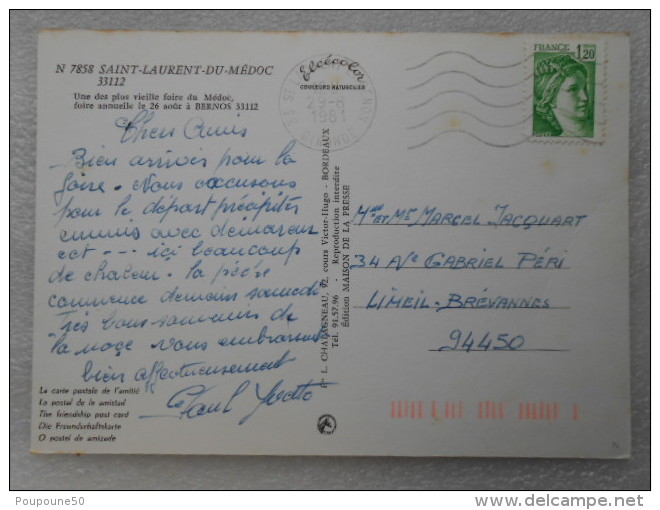 N 7858 SAINT-LAURENT-DU-MÉDOC
33112
Une des plus vieille foire du Médoc,
foire annuelle le 26 août à BERNOS 33112
Elcécolor
COULEURS NATURELLES
FRANCE 1,20
1981
GIRONDE
Chers Amis
Bien arrivés pour la
foire. Nous excusons
pour le départ précipités
ennuis avec démareur
ect --- ici beaucoup
de chaleur. la pêche
commence demain samedi.
Très bons souvenirs de
la noce vous embrassent
bien affectueusement
Paul
La carte postale de l'amitié
La postal de la amistad
The friendship post card
Die Freundschaftskarte
O postal de amizade
L. CHATAGNEAU, 92, cours Victor-Hugo - BORDEAUX
Tél. 91.57.96 - Reproduction interdite
Édition MAISON DE LA PRESSE
Mme et Mr MARCEL JACQUART
34 Ave GABRIEL PÉRI
LIMEIL-BRÉVANNES
94450
Poupoune50
delcampe.net